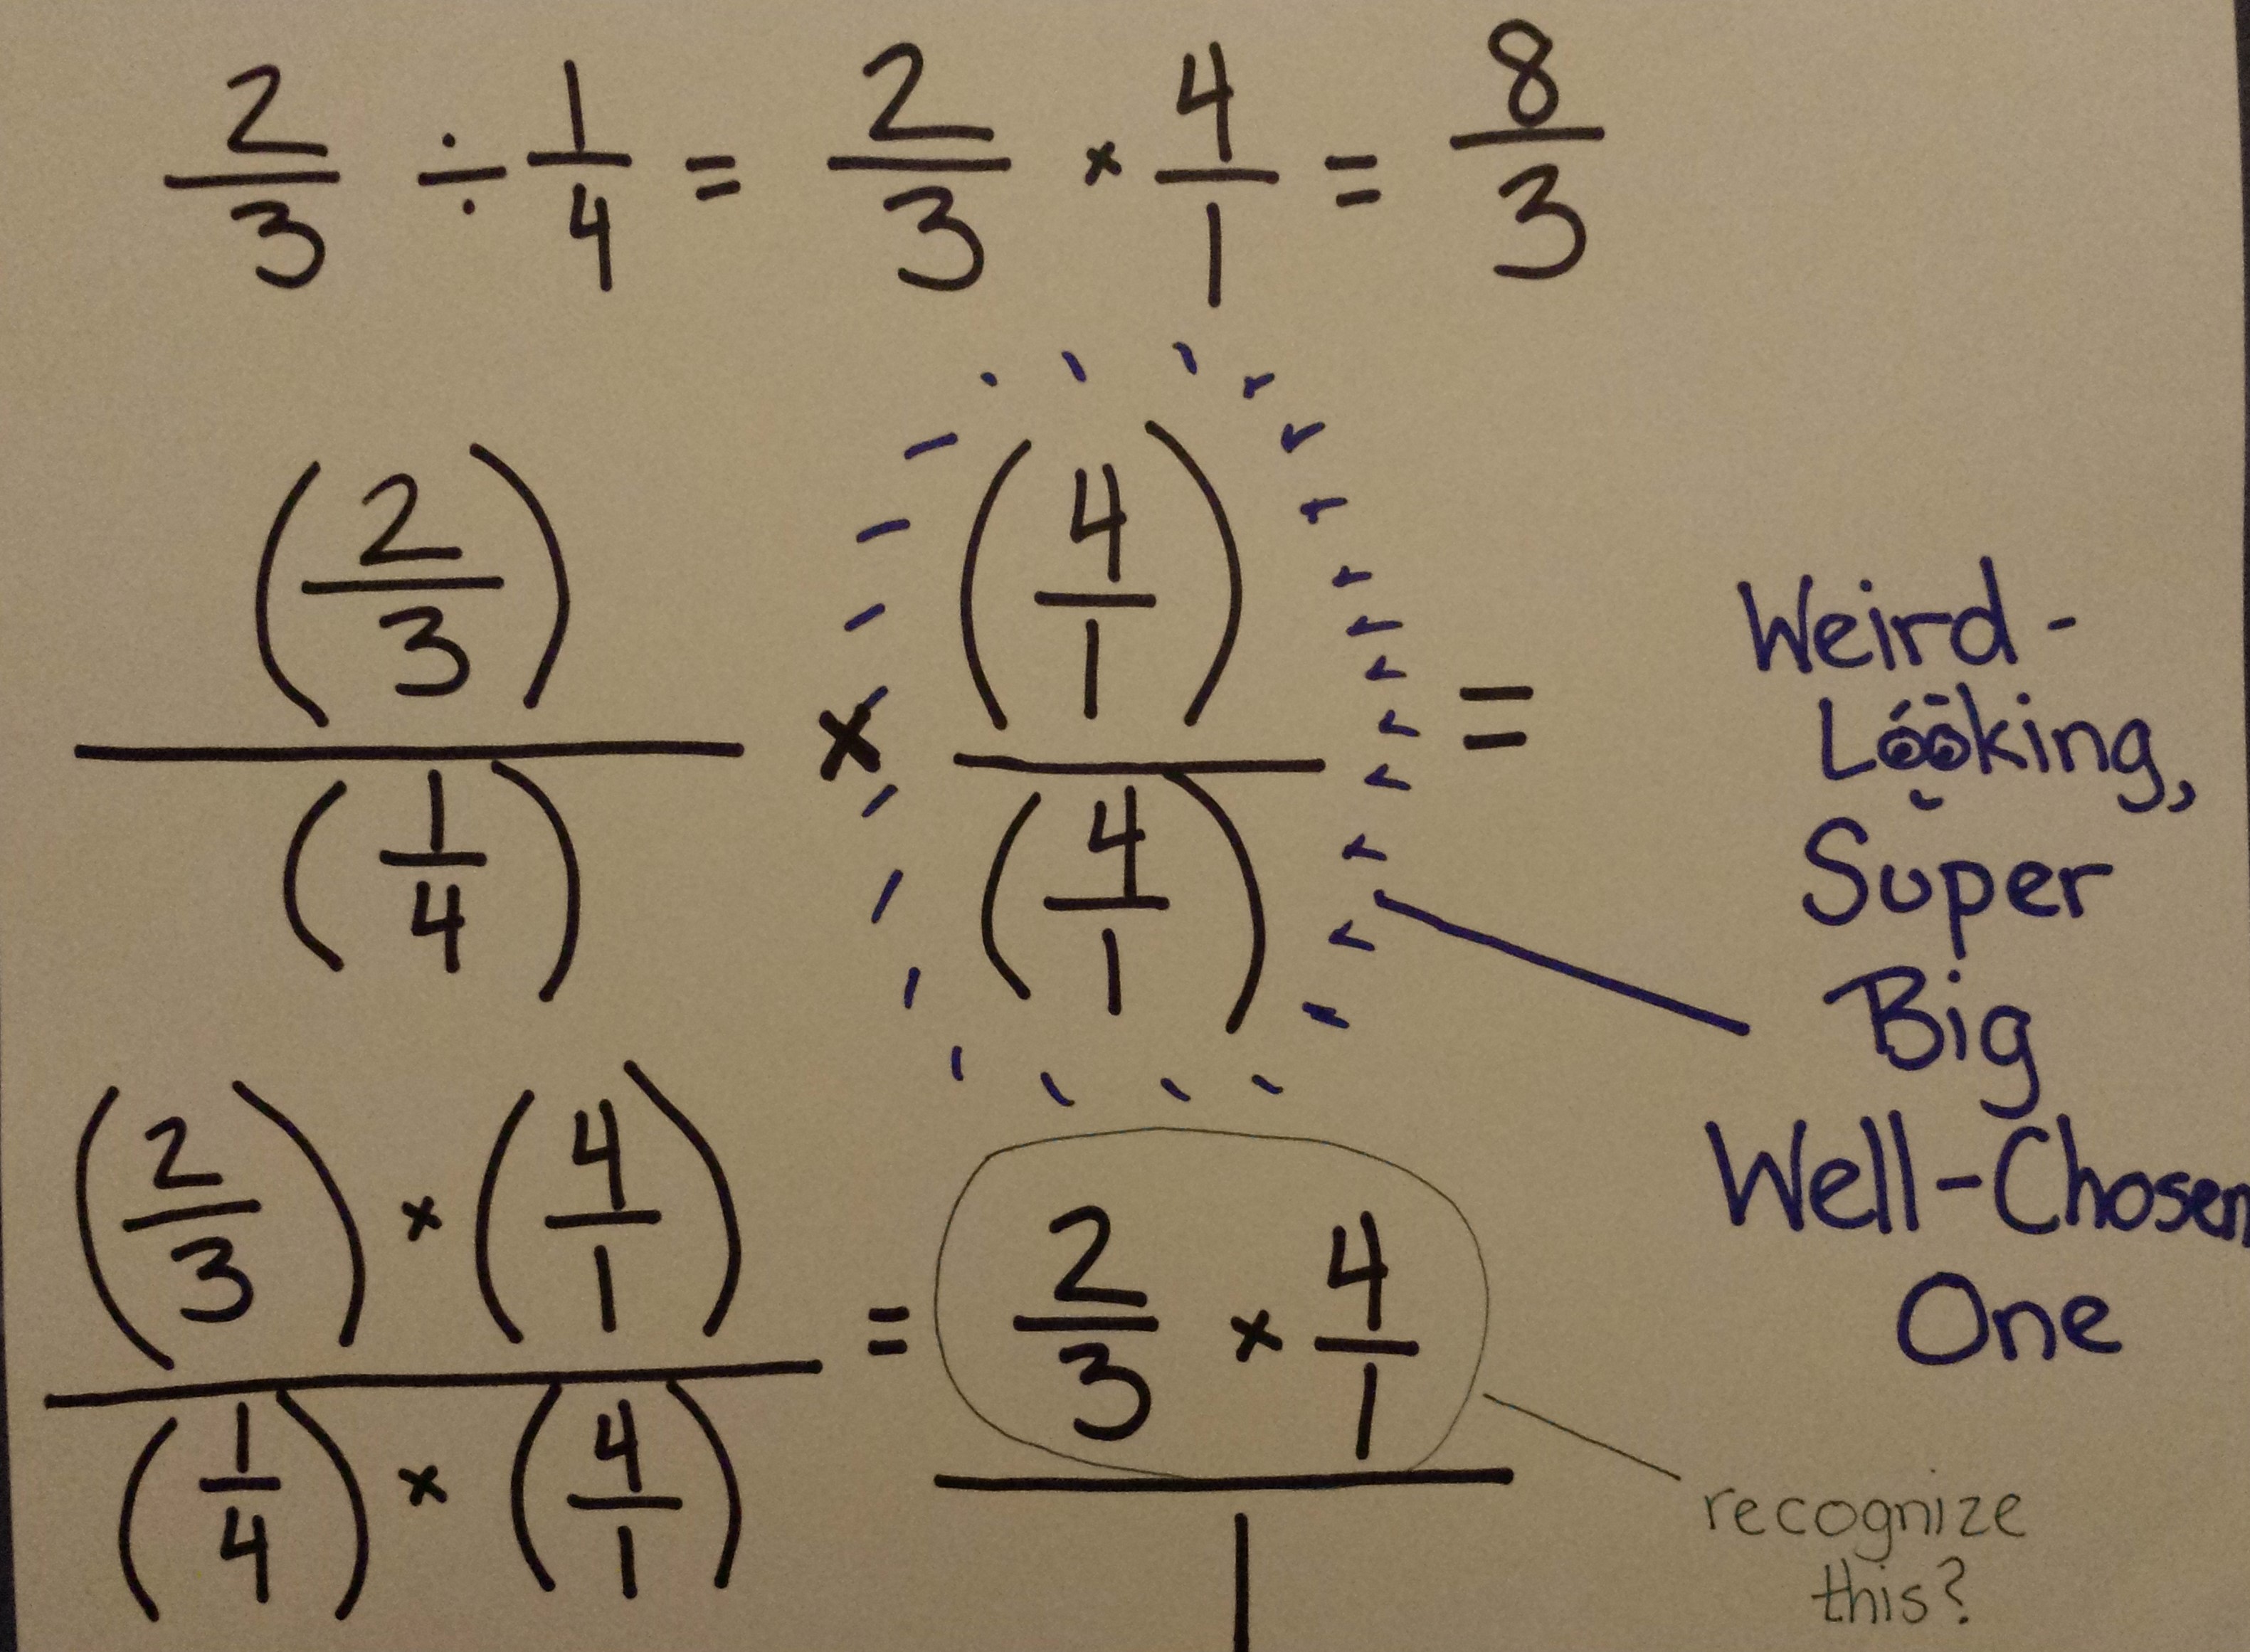 2/3 ÷ 1/4 = 2/3 × 4/1 = 8/3
(2/3)/(1/4) × (4/1)/(4/1) =
Weird-
Looking,
Super
Big
Well-Chosen
One
(2/3) × (4/1) / (1/4) × (4/1) = 2/3 × 4/1 / 1
recognize
this?